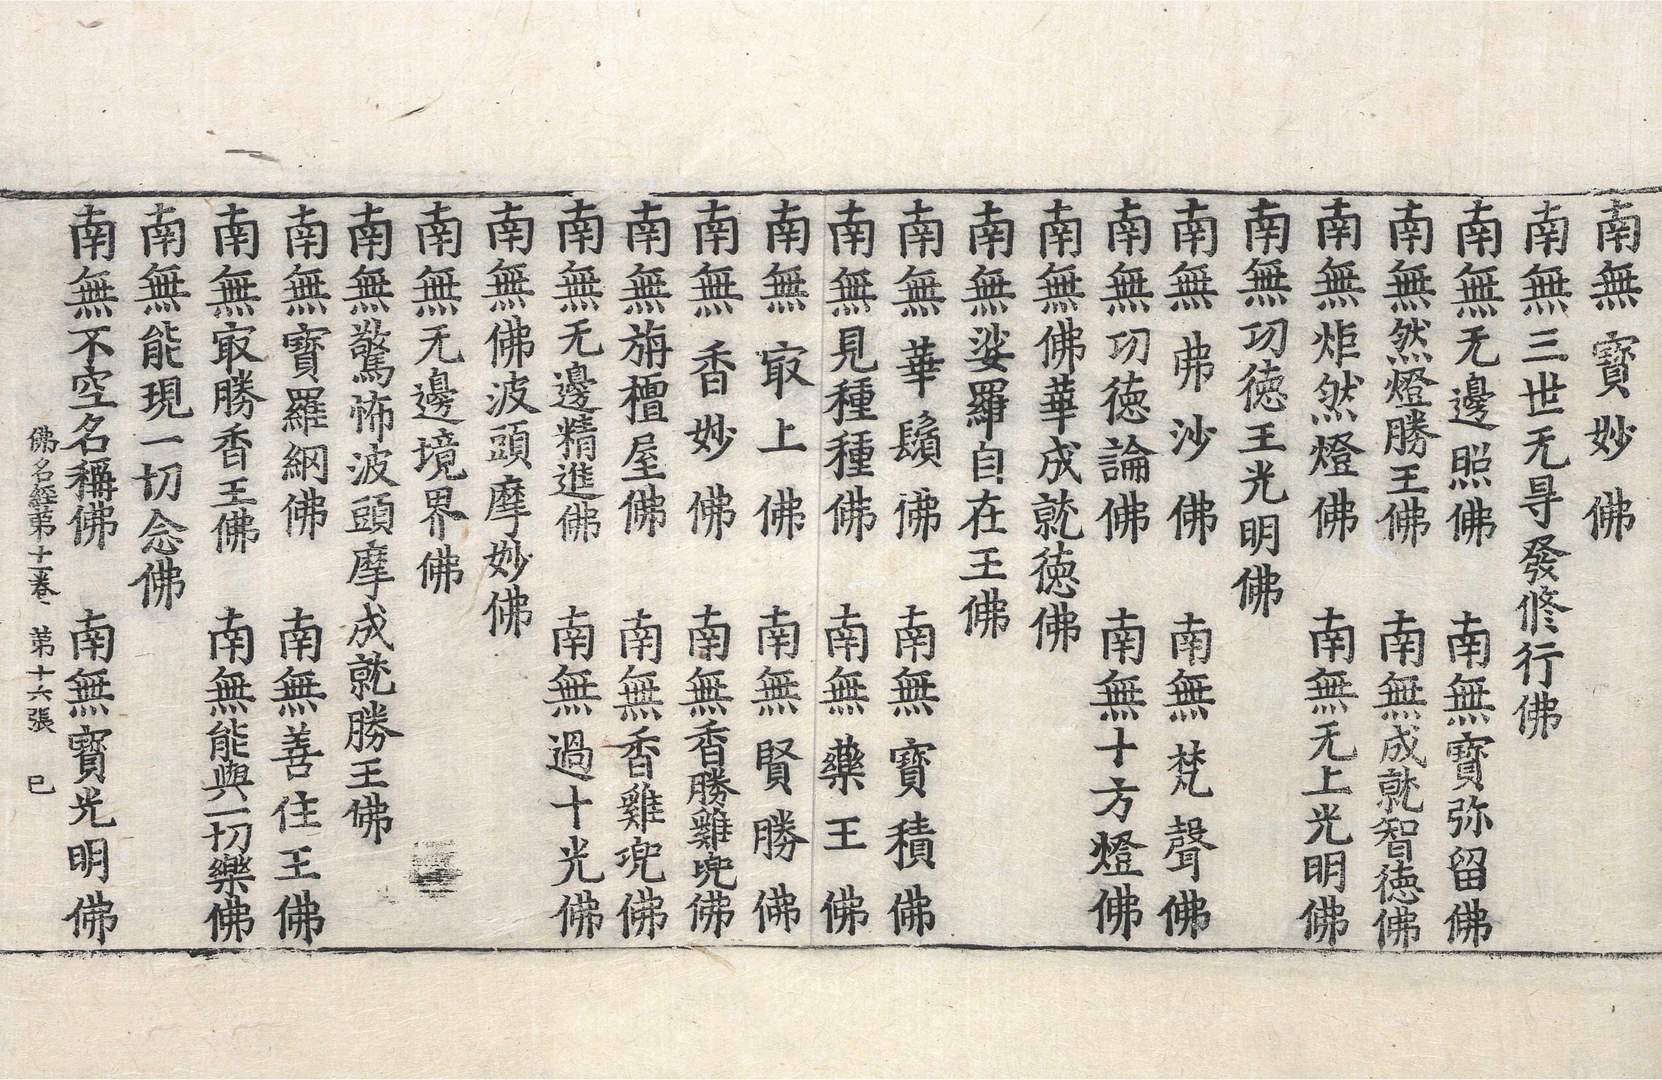 南無寶妙佛
南無三世无㝵發修行佛
南無无邊照佛　南無寶弥留佛
南無然燈勝王佛　南無成就智德佛
南無炬然燈佛　南無无上光明佛
南無功德王光明佛
南無弗沙佛　南無梵聲佛
南無功德論佛　南無十方燈佛
南無佛華成就德佛
南無娑羅自在王佛
南無華鬚佛　南無寶積佛
南無見種種佛　南無藥王佛
南無㝡上佛　南無賢勝佛
南無香妙佛　南無香勝雞兜佛
南無旃檀屋佛　南無香雞兜佛
南無无邊精進佛　南無過十光佛
南無佛波頭摩妙佛
南無无邊境界佛
南無驚怖波頭摩成就勝王佛
南無寶羅網佛　南無善住王佛
南無㝡勝香王佛　南無能與一切樂佛
南無能現一切念佛
南無不空名稱佛　南無寶光明佛
佛名經苐十一卷　苐十六張　巳